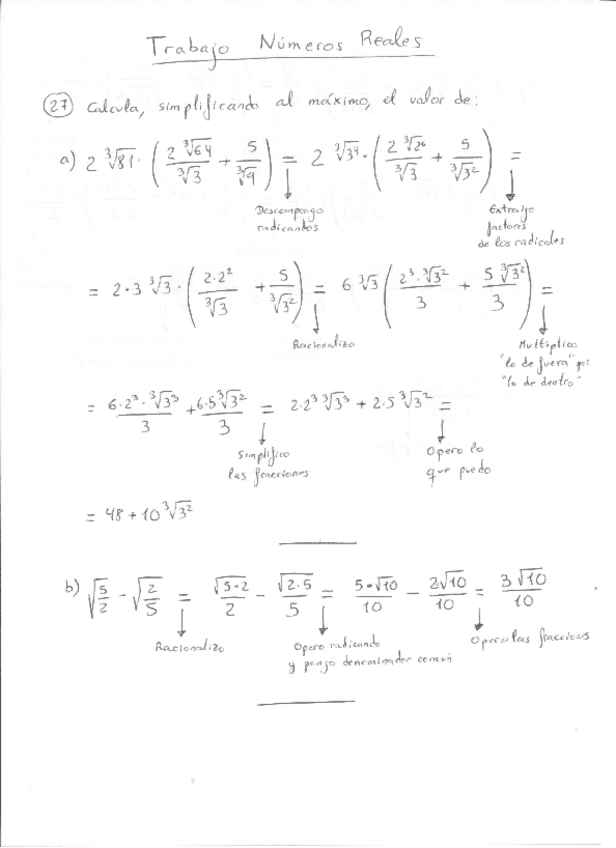 Trabajo Números Reales
27 Calcula, simplificando al máximo, el valor de:
a) 2 ∛81 · (2 ∛64 / ∛3 + 5 / ∛9) = 2 ∛3⁴ · (2 ∛2⁶ / ∛3 + 5 / ∛3²) =
Descompongo radicandos
Extraigo factores de los radicales
= 2·3 ∛3 · (2·2² / ∛3 + 5 / ∛3²) = 6 ∛3 (2³·∛3² / 3 + 5 ∛3² / 3) =
Racionalizo
Multiplico "lo de fuera" por "lo de dentro"
= 6·2³·∛3³ / 3 + 6·5 ∛3² / 3 = 2·2³ ∛3³ + 2·5 ∛3² =
Simplifico las fracciones
Opero lo que puedo
= 48 + 10 ∛3²
b) √(5/2) - √(2/5) = √(5·2) / 2 - √(2·5) / 5 = 5·√10 / 10 - 2√10 / 10 = 3√10 / 10
Racionalizo
Opero radicando y pongo denominador común
Opero las fracciones